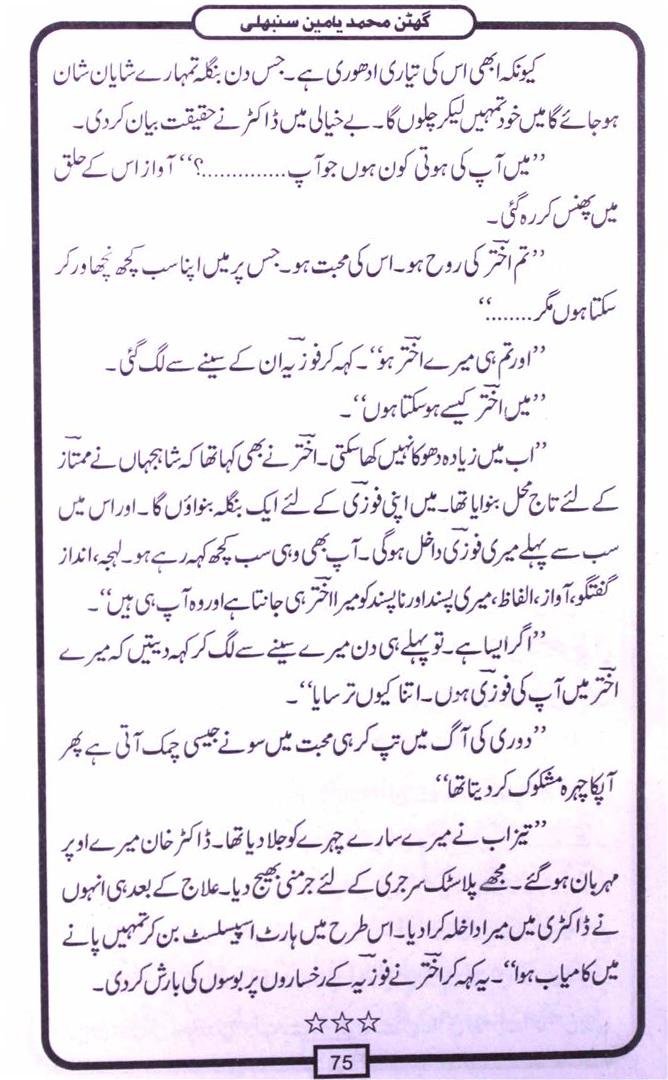 گھٹن محمد یامین سنبھلی
کیونکہ ابھی اس کی تیاری ادھوری ہے۔ جس دن بنگلہ تمہارے شایان شان
ہوجائے گا میں خود تمہیں لیکر چلوں گا۔ بے خیالی میں ڈاکٹر نے حقیقت بیان کردی۔
’’میں آپ کی ہوتی کون ہوں جو آپ..............؟‘‘ آواز اس کے حلق
میں پھنس کر رہ گئی۔
’’تم اختؔر کی روح ہو۔ اس کی محبت ہو۔ جس پر میں اپنا سب کچھ نچھاور کر
سکتا ہوں مگر........‘‘
’’اور تم ہی میرے اختؔر ہو‘‘۔ کہہ کر فوزؔیہ ان کے سینے سے لگ گئی۔
’’میں اختؔر کیسے ہوسکتا ہوں‘‘۔
’’اب میں زیادہ دھوکا نہیں کھا سکتی۔ اختؔر نے بھی کہا تھا کہ شاہجہاں نے ممتاؔز
کے لئے تاج محل بنوایا تھا۔ میں اپنی فوزؔی کے لئے ایک بنگلہ بنواؤں گا۔ اور اس میں
سب سے پہلے میری فوزؔی داخل ہوگی۔ آپ بھی وہی سب کچھ کہہ رہے ہو۔ لہجہ، انداز
گفتگو، آواز، الفاظ، میری پسند اور ناپسند کو میرا اختؔر ہی جانتا ہے اور وہ آپ ہی ہیں‘‘۔
’’اگر ایسا ہے۔ تو پہلے ہی دن میرے سینے سے لگ کر کہہ دیتیں کہ میرے
اختؔر میں آپ کی فوزؔی ہوں۔ اتنا کیوں ترسایا‘‘۔
’’دوری کی آگ میں تپ کر ہی محبت میں سونے جیسی چمک آتی ہے پھر
آپکا چہرہ مشکوک کردیتا تھا‘‘
’’تیزاب نے میرے سارے چہرے کو جلا دیا تھا۔ ڈاکٹر خان میرے اوپر
مہربان ہوگئے۔ مجھے پلاسٹک سرجری کے لئے جرمنی بھیج دیا۔ علاج کے بعد ہی انہوں
نے ڈاکٹری میں میرا داخلہ کرادیا۔ اس طرح میں ہارٹ اسپیسلسٹ بن کر تمہیں پانے
میں کامیاب ہوا‘‘۔ یہ کہہ کر اختؔر نے فوزؔیہ کے رخساروں پر بوسوں کی بارش کردی۔
☆☆☆
75